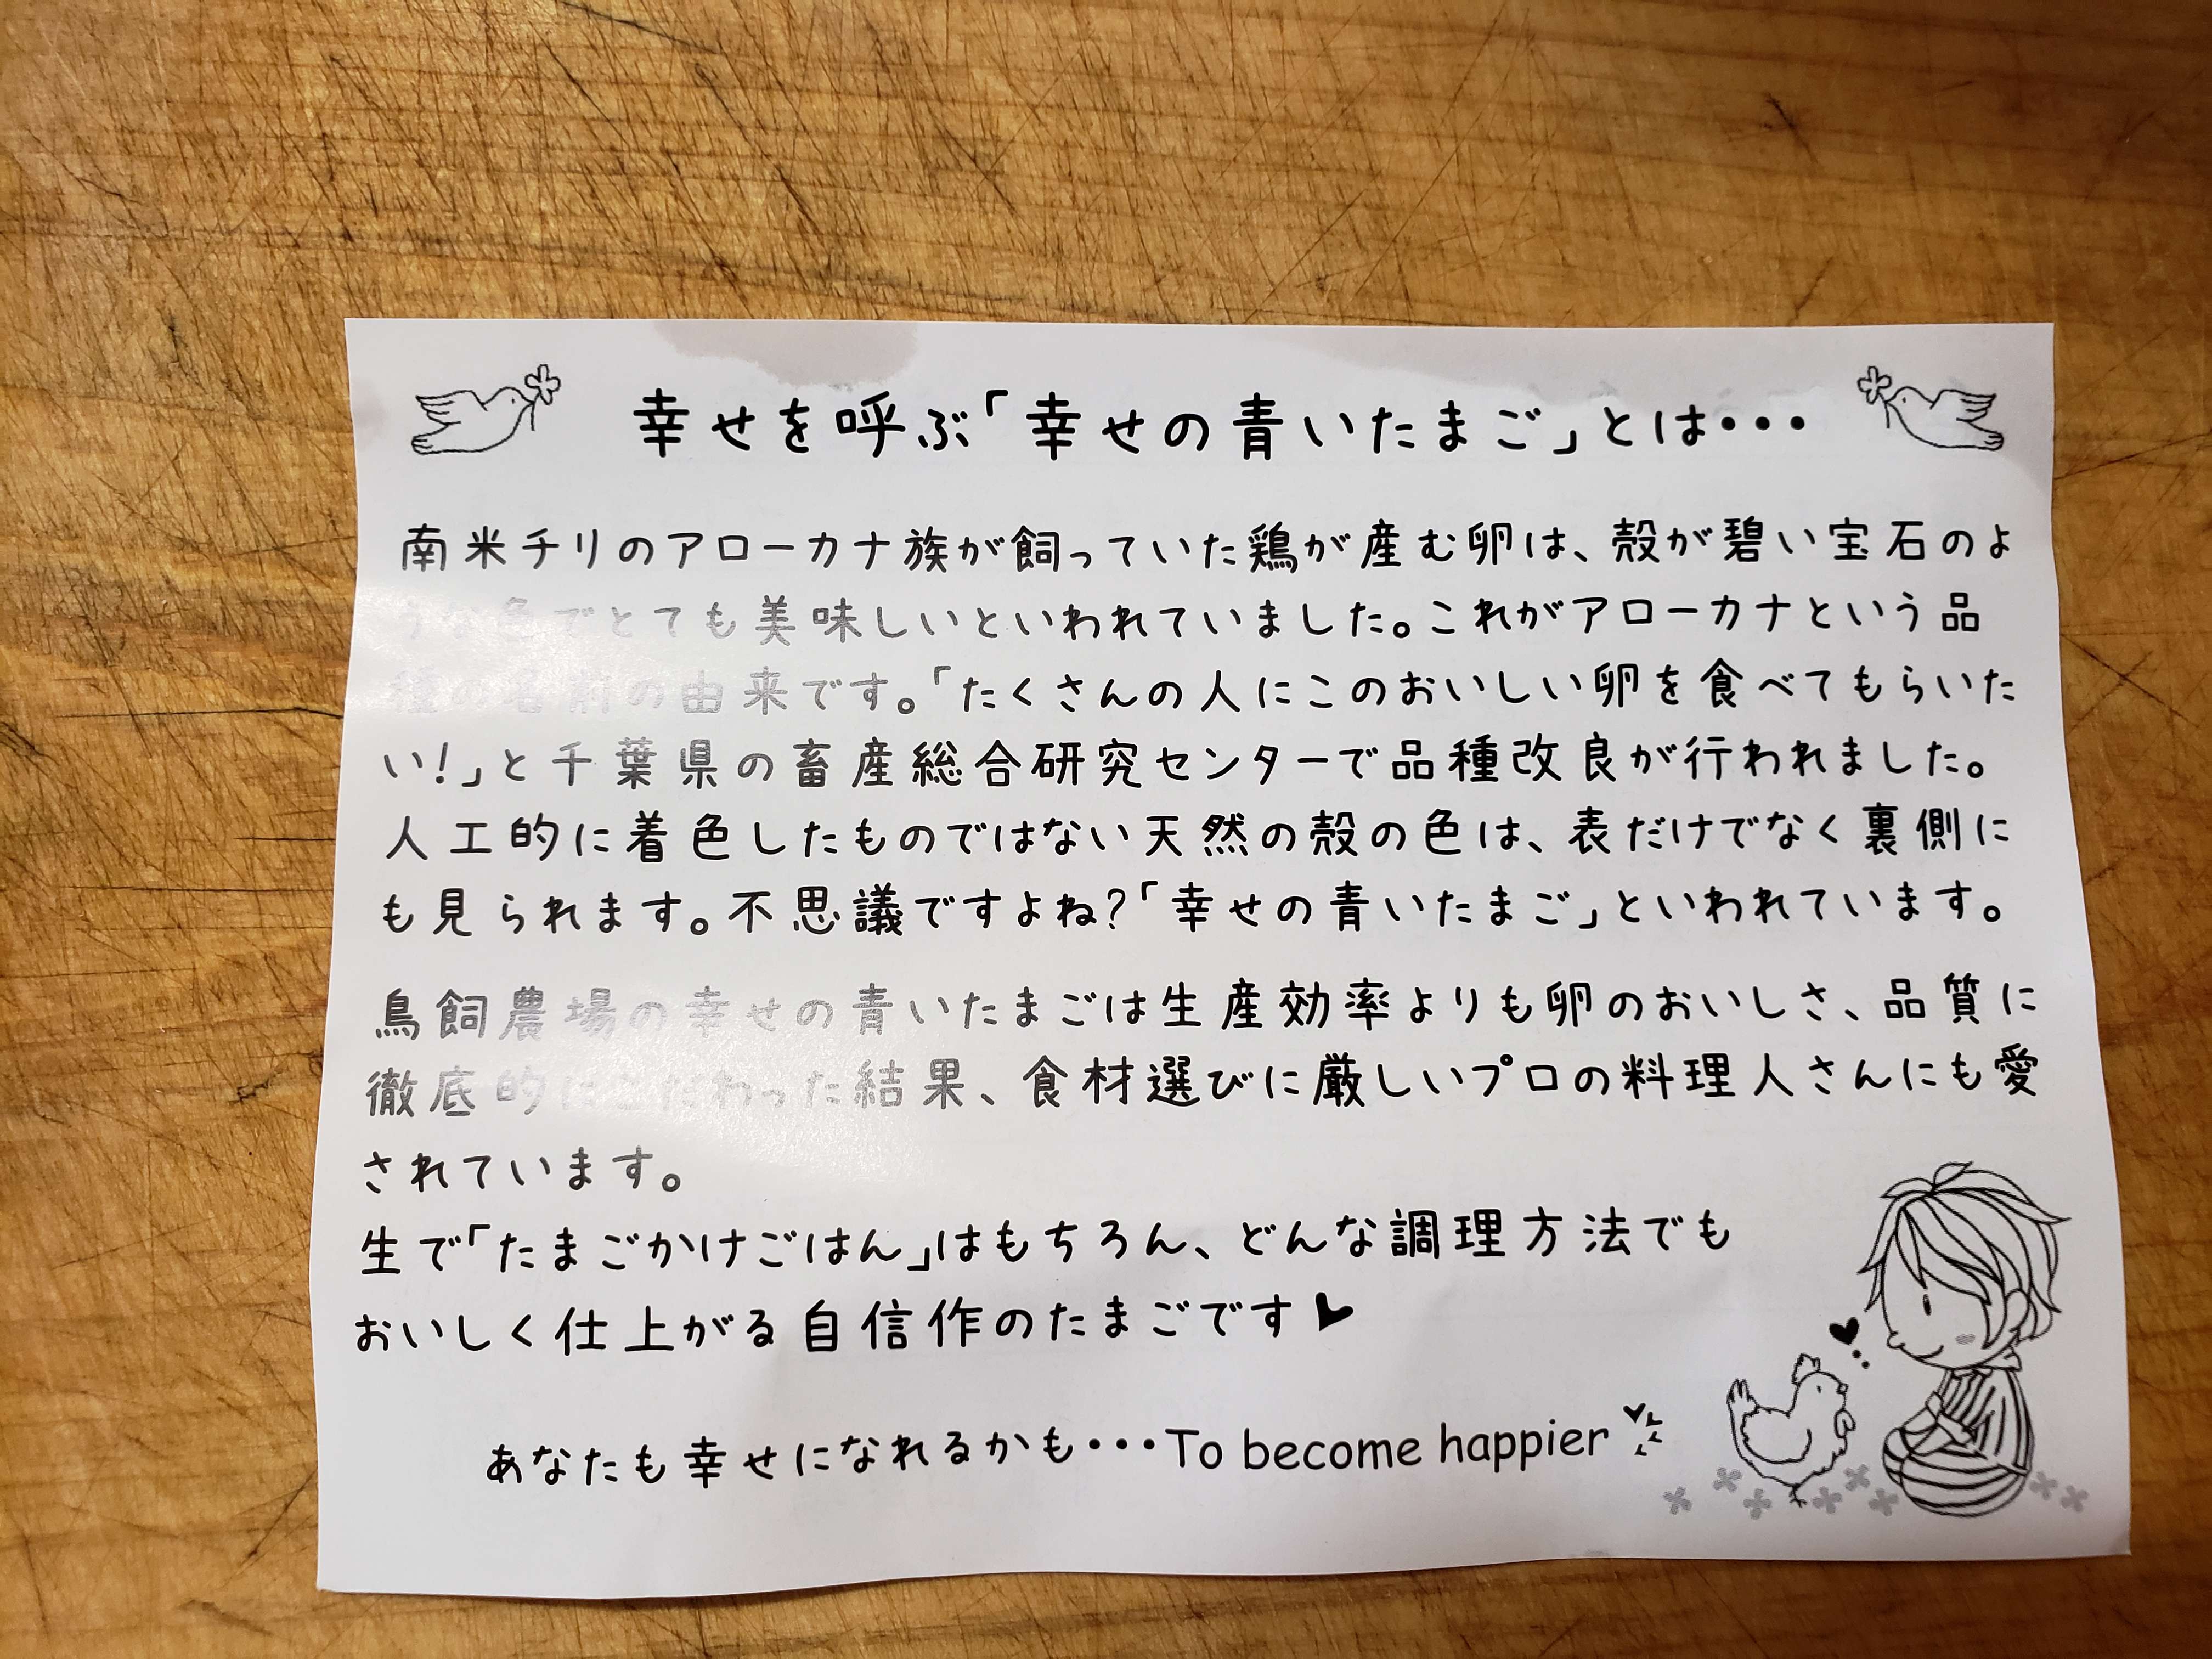 幸せを呼ぶ「幸せの青いたまご」とは・・・
南米チリのアローカナ族が飼っていた鶏が産む卵は、殻が碧い宝石のよ
うな色でとても美味しいといわれていました。これがアローカナという品
種の名前の由来です。「たくさんの人にこのおいしい卵を食べてもらいた
い!」と千葉県の畜産総合研究センターで品種改良が行われました。
人工的に着色したものではない天然の殻の色は、表だけでなく裏側に
も見られます。不思議ですよね?「幸せの青いたまご」といわれています。
鳥飼農場の幸せの青いたまごは生産効率よりも卵のおいしさ、品質に
徹底的にこだわった結果、食材選びに厳しいプロの料理人さんにも愛
されています。
生で「たまごかけごはん」はもちろん、どんな調理方法でも
おいしく仕上がる自信作のたまごです
あなたも幸せになれるかも・・・To become happier